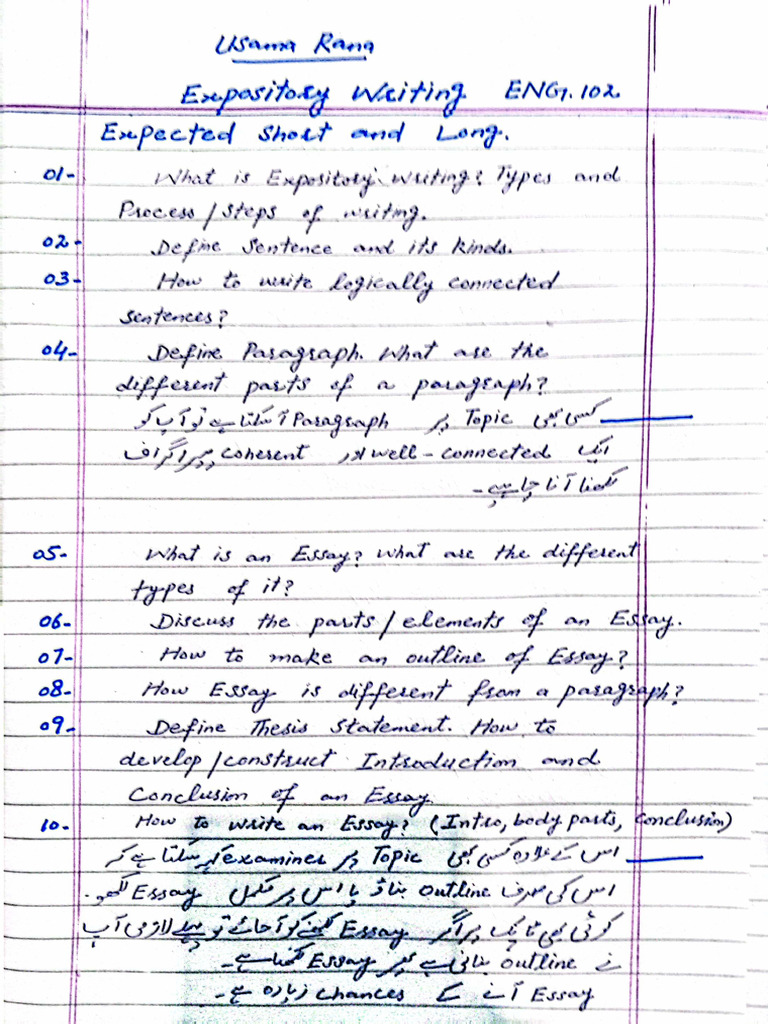 Usama Rana
Expository Writing ENG.102
Expected Short and Long.
01- What is Expository Writing? Types and
Process/Steps of writing.
02- Define Sentence and its kinds.
03- How to write logically connected
sentences?
04- Define Paragraph. What are the
different parts of a paragraph?
کسی بھی Topic پر Paragraph آ سکتا ہے تو آپ کو
ایک well-connected اور coherent پیراگراف
لکھنا آنا چاہیے۔
05- What is an Essay? What are the different
types of it?
06- Discuss the parts/elements of an Essay.
07- How to make an outline of Essay?
08- How Essay is different from a paragraph?
09- Define Thesis Statement. How to
develop/construct Introduction and
Conclusion of an Essay
10- How to write an Essay? (Intro, body parts, Conclusion)
اس کے علاوہ کسی بھی Topic پر examiner کہہ سکتا ہے کہ
اس کی صرف outline بناؤ یا اس پر مکمل Essay لکھو۔
کوئی بھی ٹاپک پر اگر Essay لکھنے کو آ جائے تو پہلے لازمی آپ
نے outline بنانی ہے پھر Essay لکھنا ہے۔
Essay آنے کے chances زیادہ ہے۔